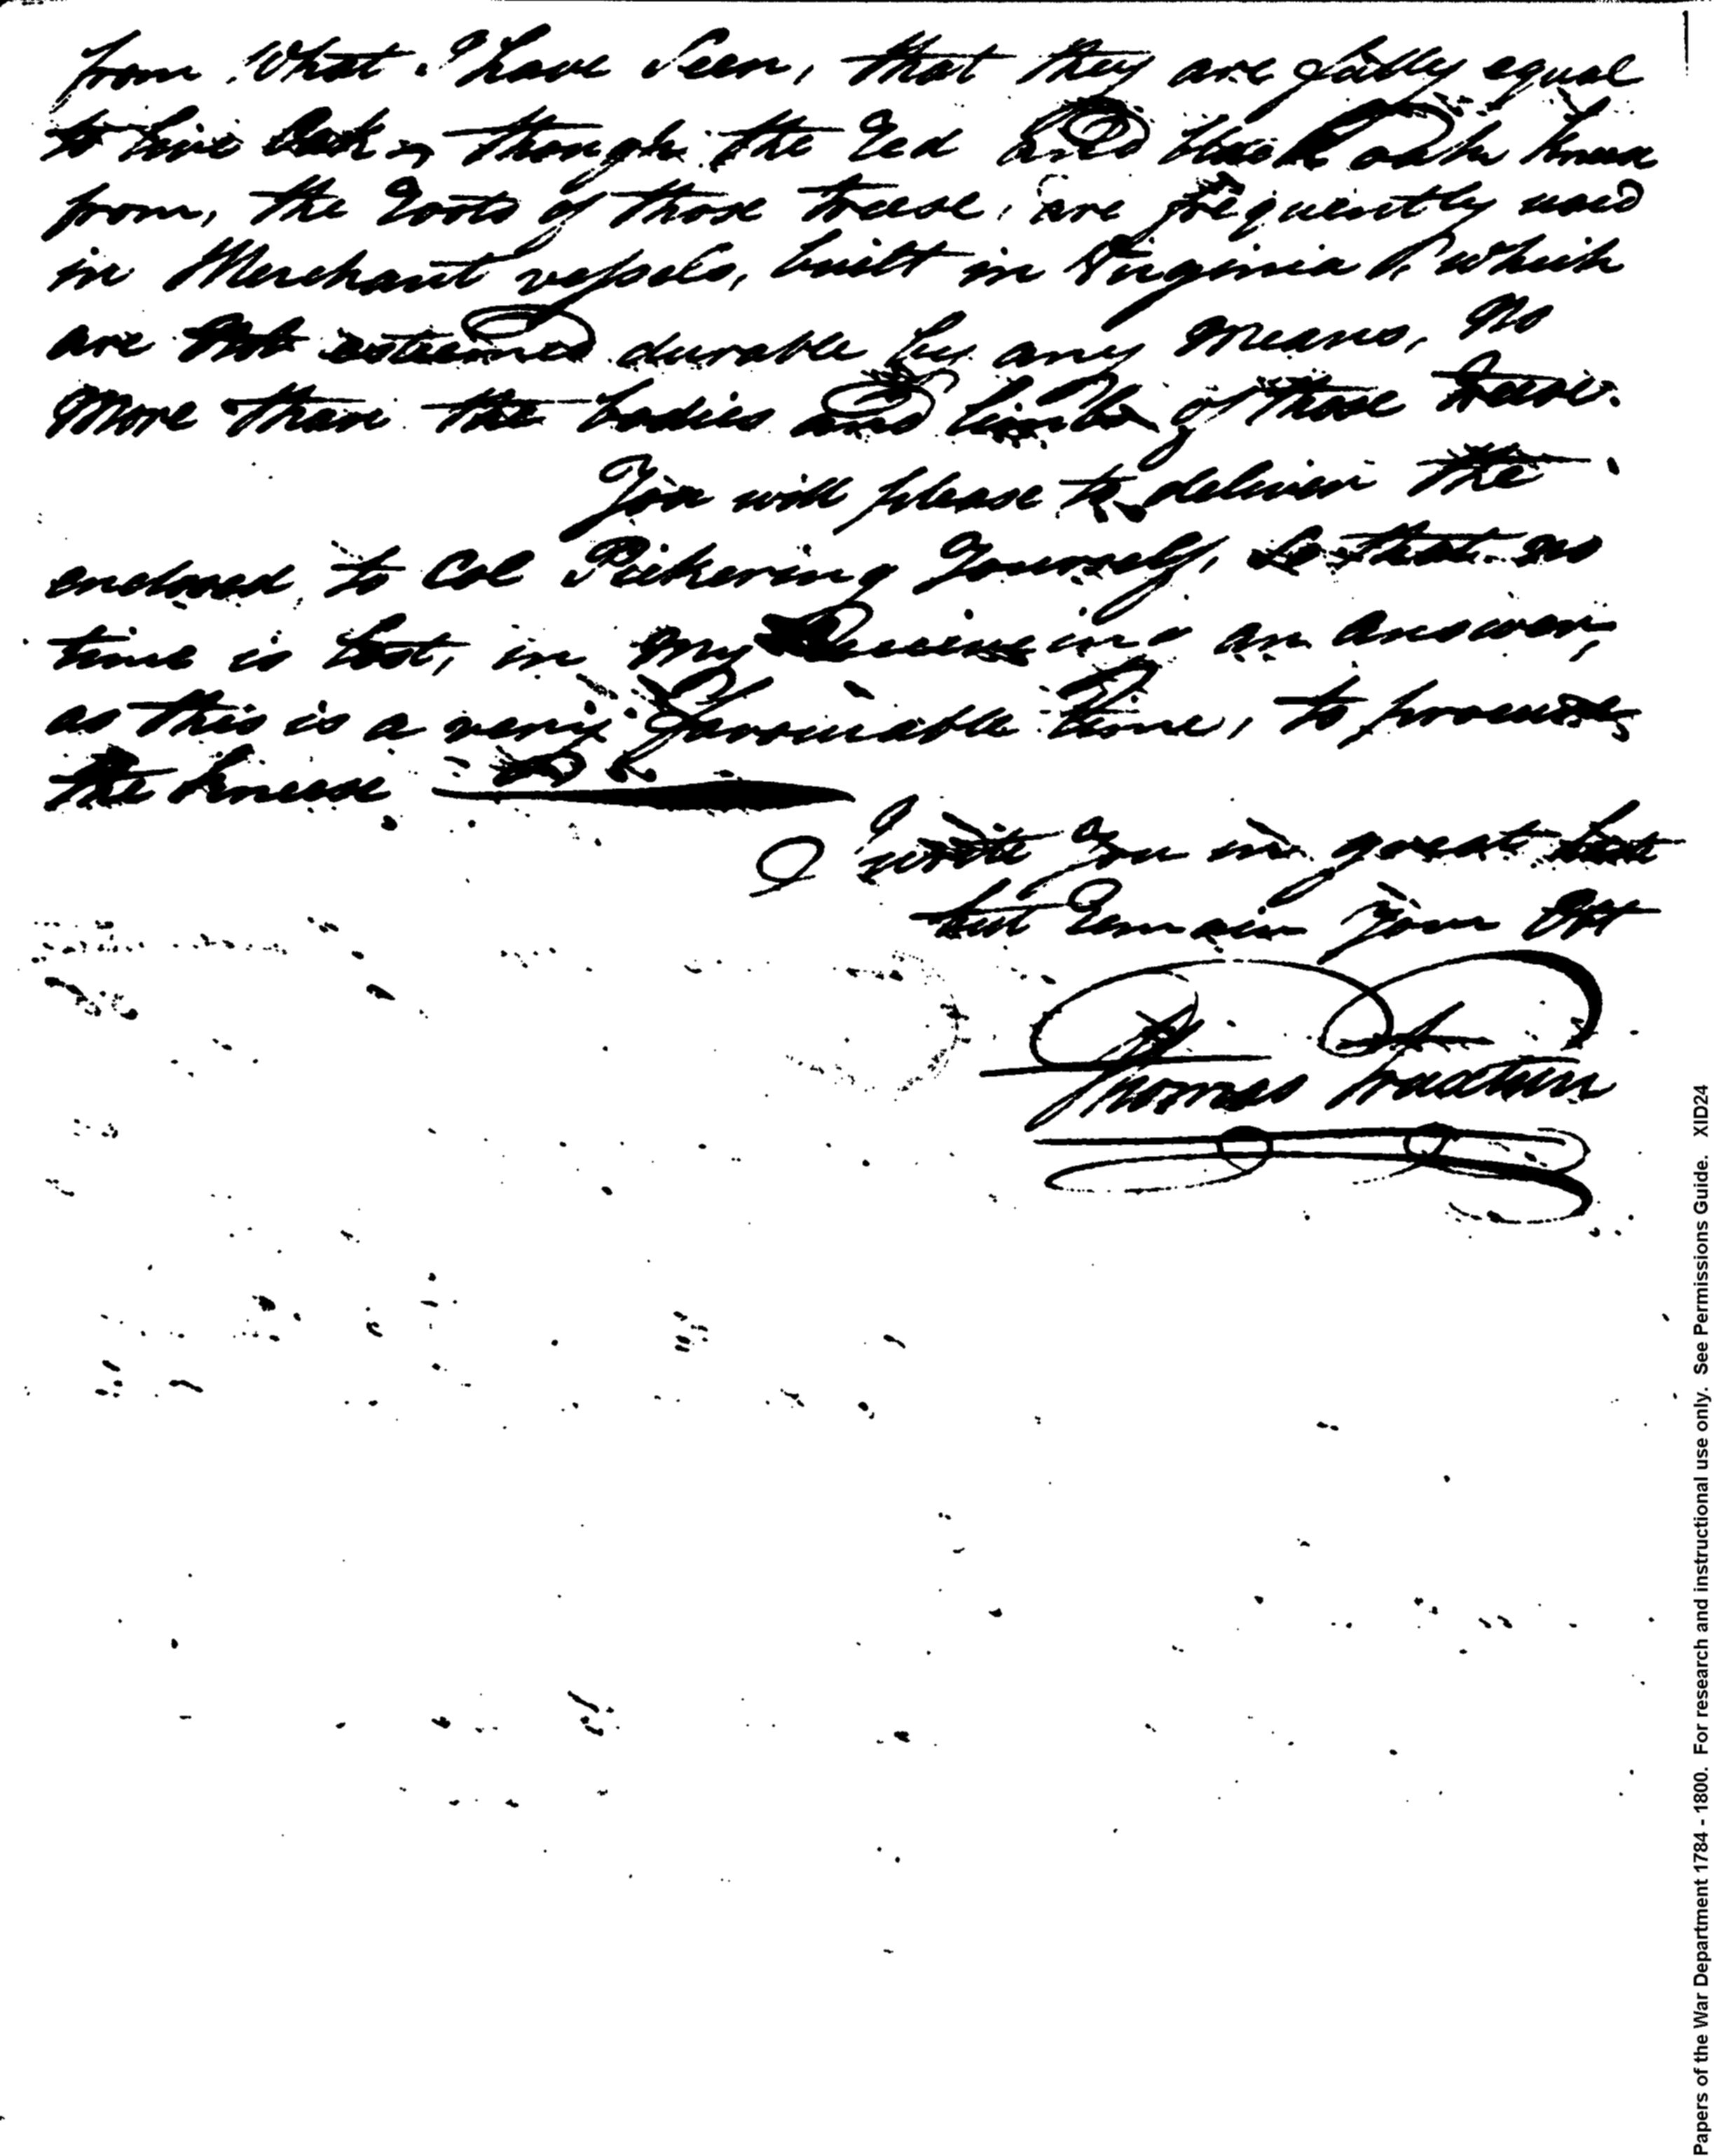 from What I have Seen, that they are fully equal
to live Oak, though the Red and black oake knees
from, the Roots of those treese, are frequently used
in Merchant vessels, built in Virginia & which
are Not esteemed durable by any means, No
More than the bodies and limbs of those treese.
You will please to deliver the
enclosed, to Col Pickering Yourself, So that no
time is lost, in my Receiveing an answer,
as this is a very Favourable time, to procure
the kneese
I write You in great hast
but Remain Your
Thomas Truxtun
Papers of the War Department 1784 - 1800. For research and instructional use only. See Permissions Guide. XID24